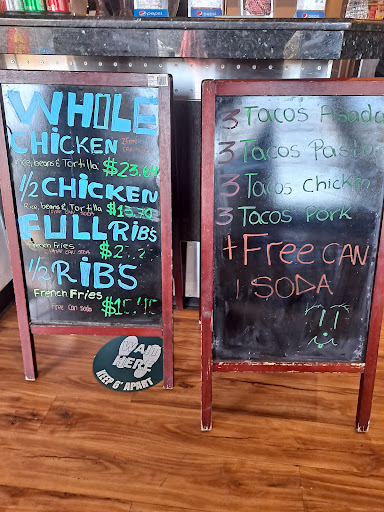 pepsi
pepsi
pepsi
WHOLE
CHICKEN
Rice, beans & Tortilla
1/2 CHICKEN
Rice, beans & Tortilla
FULL RIBS
French Fries
1/2 RIBS
French Fries
Free Can soda
WAIT
HERE
KEEP 6' APART
3 Tacos Asada
3 Tacos Pastor
3 Tacos Chicken
3 Tacos Pork
+ Free CAN
1 SODA